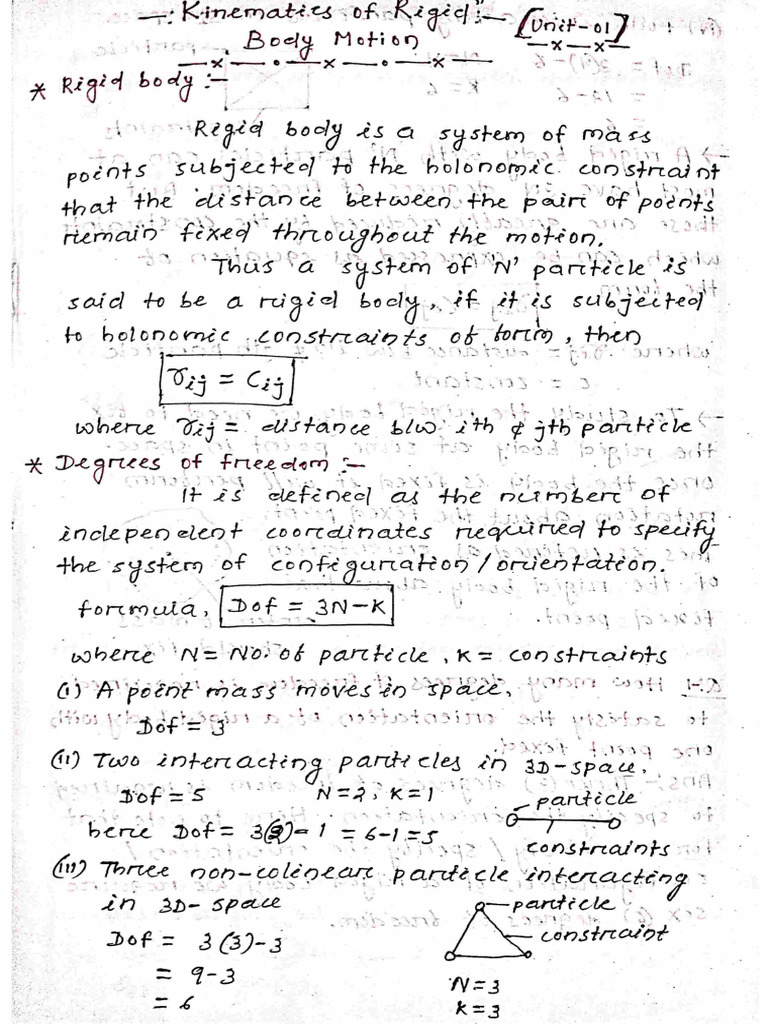 —: Kinematics of Rigid :— [Unit-01]
Body Motion —x—x—
—x—•—x—•—x—
* Rigid body :—
Rigid body is a system of mass
points subjected to the holonomic constraint
that the distance between the pair of points
remain fixed throughout the motion.
Thus a system of 'N' particle is
said to be a rigid body, if it is subjected
to holonomic constraints of form, then
rij = Cij
where rij = distance b/w ith & jth particle
* Degrees of freedom :—
It is defined as the number of
independent coordinates required to specify
the system of configuration/orientation.
formula, Dof = 3N-K
where N = No. of particle, K = constraints
(i) A point mass moves in space,
Dof = 3
(ii) Two interacting particles in 3D-space,
Dof = 5 N=2, K=1
particle
here Dof = 3(2)-1 = 6-1=5
constraints
(iii) Three non-colinear particle interacting
in 3D-space
particle
constraint
Dof = 3(3)-3
= 9-3
= 6
N=3
K=3